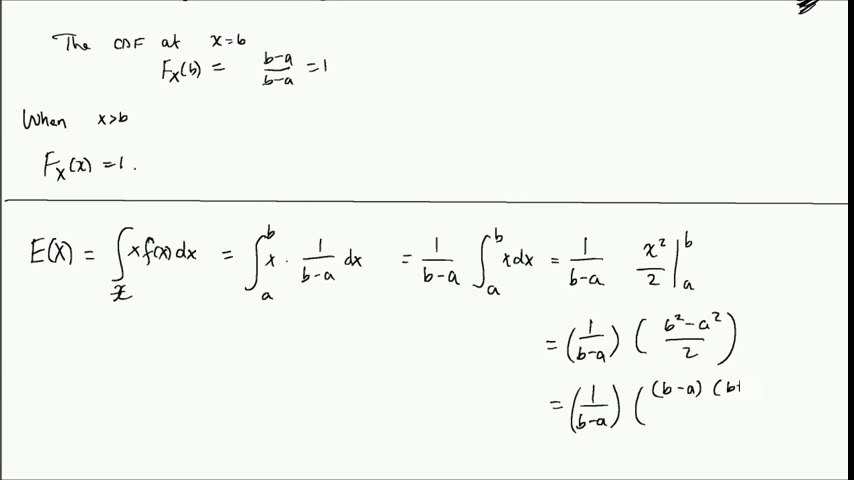 The CDF at x=b
F_X(b) = (b-a)/(b-a) = 1
When x>b
F_X(x) = 1.
E(X) = ∫_x x f(x) dx = ∫_a^b x · 1/(b-a) dx = 1/(b-a) ∫_a^b x dx = 1/(b-a) x²/2 |_a^b
= (1/(b-a)) ((b²-a²)/2)
= (1/(b-a)) ( (b-a) (b+